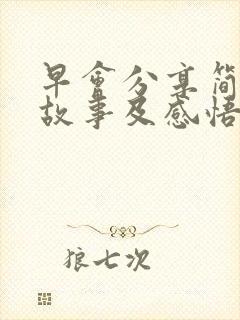 早會分享簡
故事及感悟
狼七次